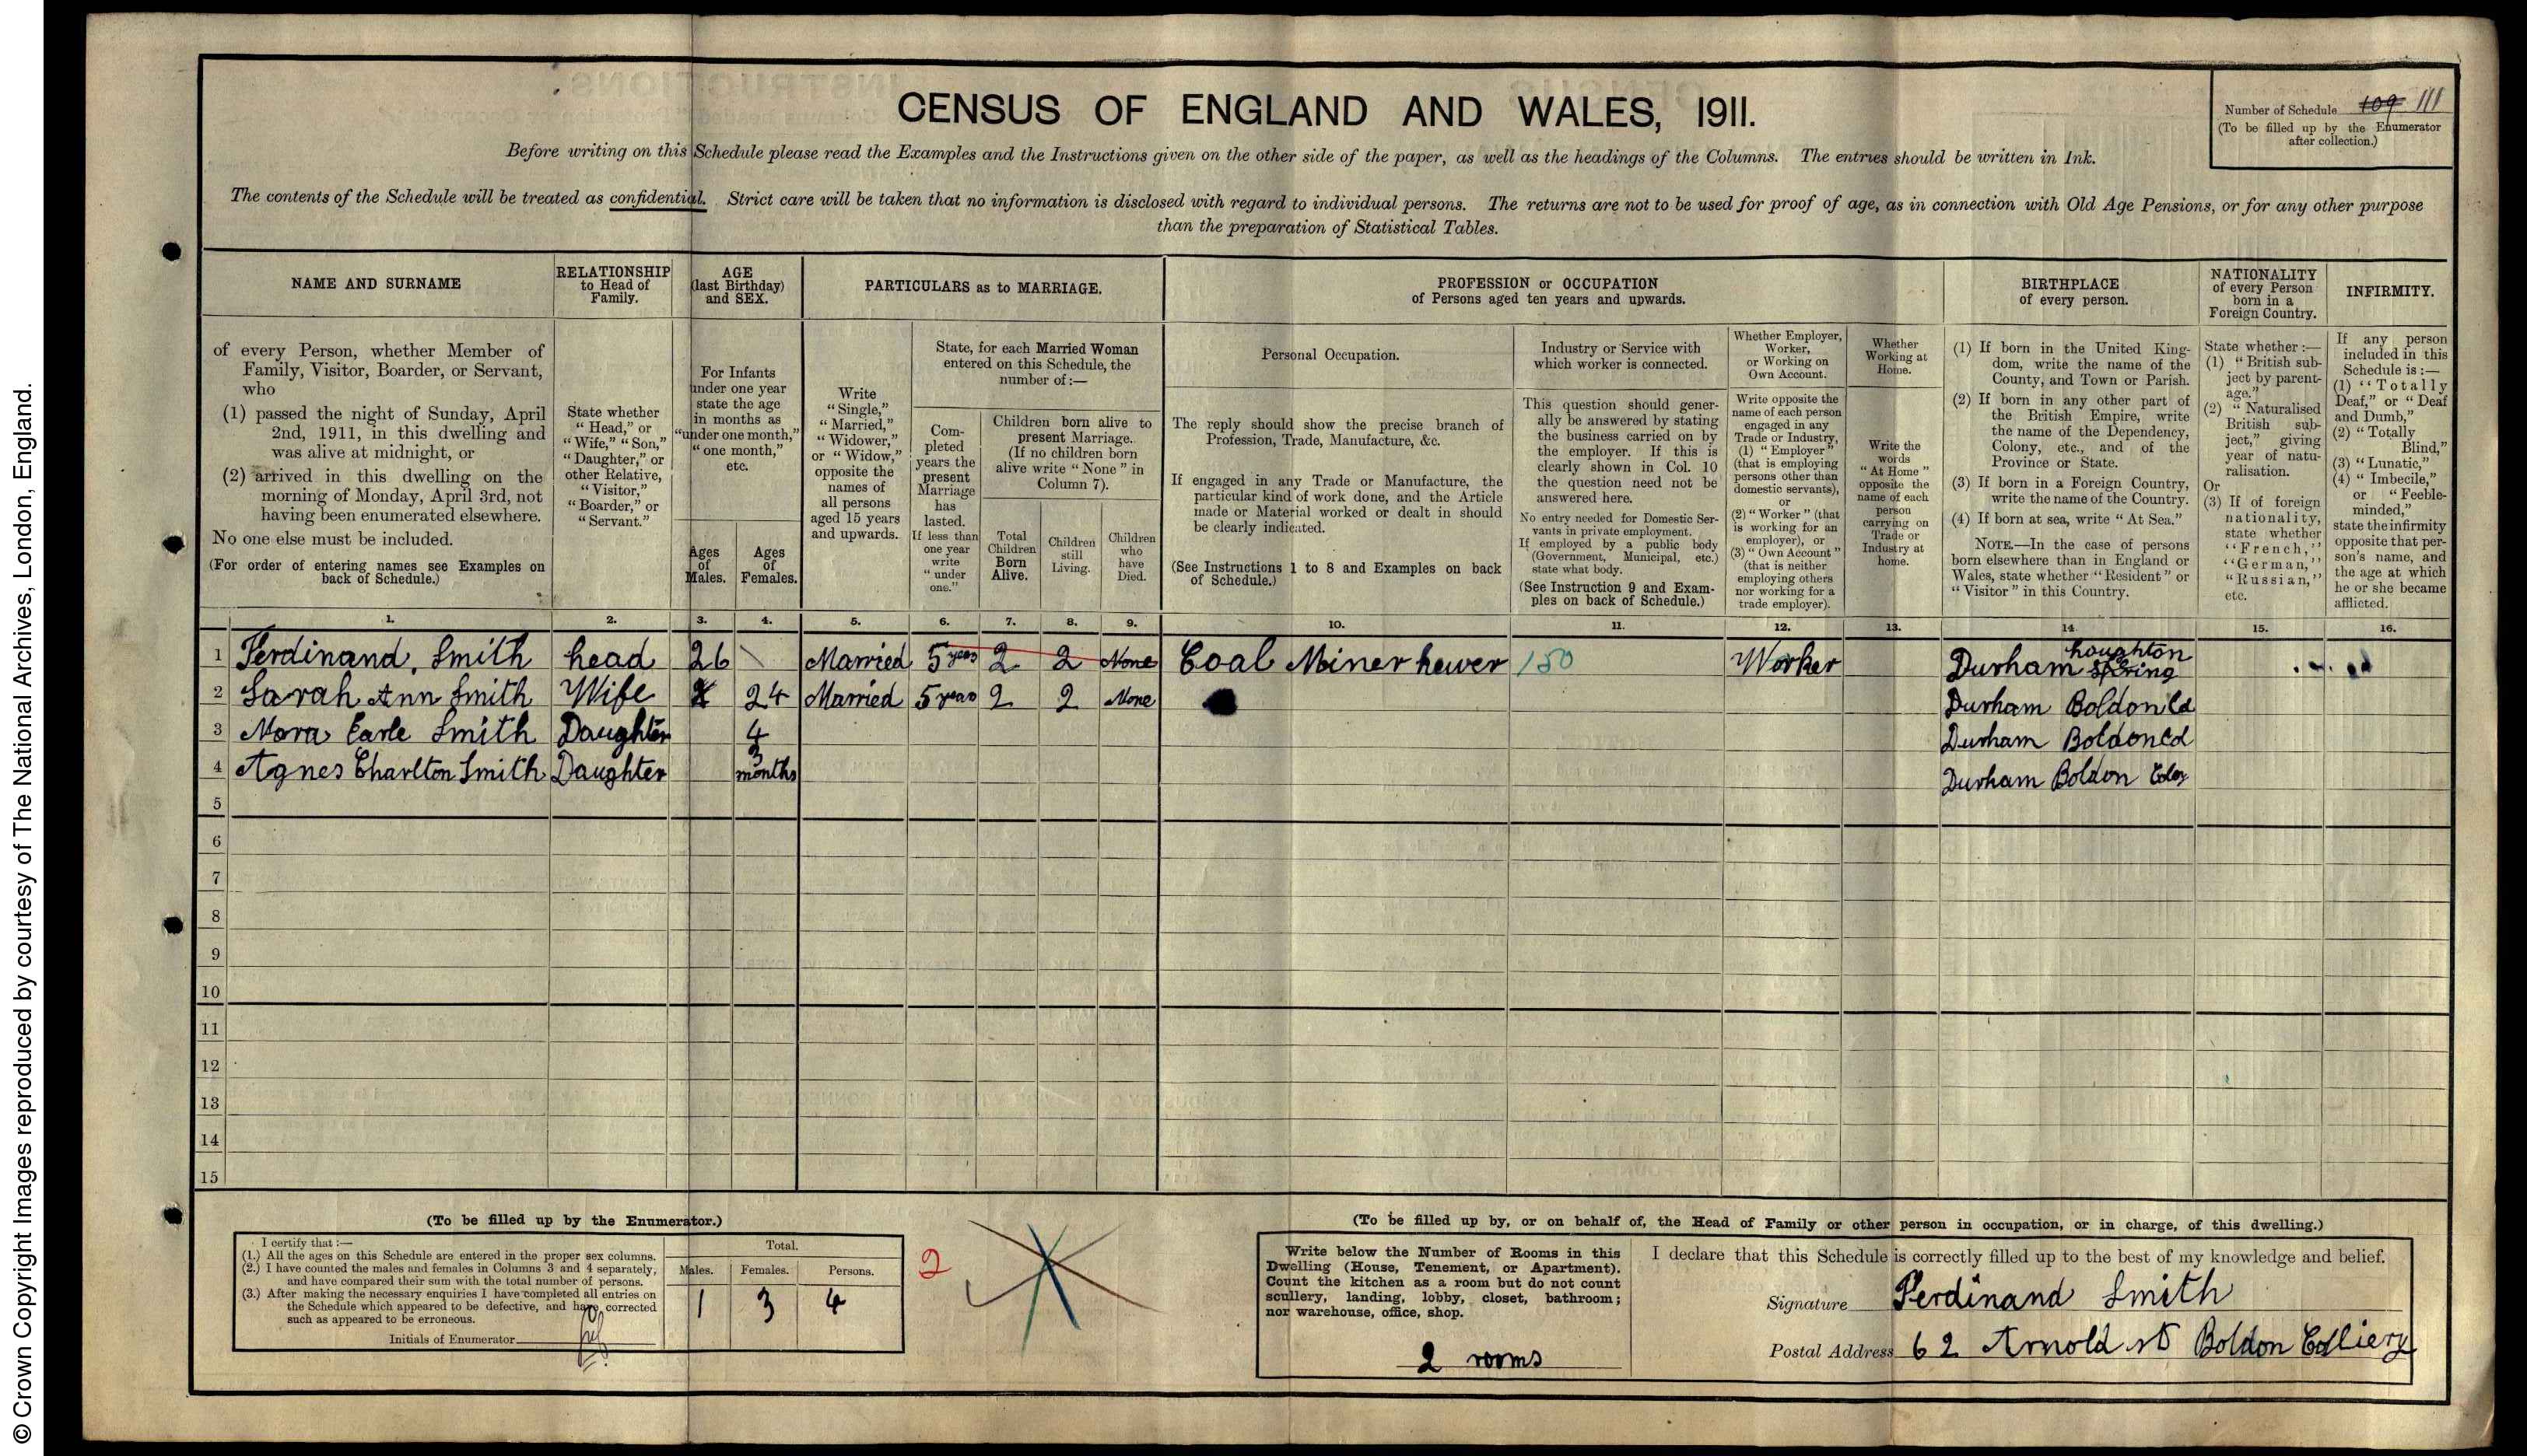 CENSUS OF ENGLAND AND WALES, 1911.
Number of Schedule 109 111
(To be filled up by the Enumerator
after collection.)
Before writing on this Schedule please read the Examples and the Instructions given on the other side of the paper, as well as the headings of the Columns. The entries should be written in Ink.
The contents of the Schedule will be treated as confidential. Strict care will be taken that no information is disclosed with regard to individual persons. The returns are not to be used for proof of age, as in connection with Old Age Pensions, or for any other purpose
than the preparation of Statistical Tables.
NAME AND SURNAME
of every Person, whether Member of
Family, Visitor, Boarder, or Servant,
who
(1) passed the night of Sunday, April
2nd, 1911, in this dwelling and
was alive at midnight, or
(2) arrived in this dwelling on the
morning of Monday, April 3rd, not
having been enumerated elsewhere.
No one else must be included.
(For order of entering names see Examples on
back of Schedule.)
RELATIONSHIP
to Head of
Family.
State whether
"Head," or
"Wife," "Son,"
"Daughter," or
other Relative,
"Visitor,"
"Boarder," or
"Servant."
AGE
(last Birthday)
and SEX.
For Infants
under one year
state the age
in months as
"under one month,"
"one month,"
etc.
Ages
of
Males.
Ages
of
Females.
PARTICULARS as to MARRIAGE.
Write
"Single,"
"Married,"
"Widower,"
or "Widow,"
opposite the
names of
all persons
aged 15 years
and upwards.
State, for each Married Woman
entered on this Schedule, the
number of:—
Com-
pleted
years the
present
Marriage
has
lasted.
If less than
one year
write
"under
one."
Children born alive to
present Marriage.
(If no children born
alive write "None" in
Column 7).
Total
Children
Born
Alive.
Children
still
Living.
Children
who
have
Died.
PROFESSION or OCCUPATION
of Persons aged ten years and upwards.
Personal Occupation.
The reply should show the precise branch of
Profession, Trade, Manufacture, &c.
If engaged in any Trade or Manufacture, the
particular kind of work done, and the Article
made or Material worked or dealt in should
be clearly indicated.
(See Instructions 1 to 8 and Examples on back
of Schedule.)
Industry or Service with
which worker is connected.
This question should gener-
ally be answered by stating
the business carried on by
the employer. If this is
clearly shown in Col. 10
the question need not be
answered here.
No entry needed for Domestic Ser-
vants in private employment.
If employed by a public body
(Government, Municipal, etc.)
state what body.
(See Instruction 9 and Exam-
ples on back of Schedule.)
Whether Employer,
Worker,
or Working on
Own Account.
Write opposite the
name of each person
engaged in any
Trade or Industry,
(1) "Employer"
(that is employing
persons other than
domestic servants),
or
(2) "Worker" (that
is working for an
employer), or
(3) "Own Account"
(that is neither
employing others
nor working for a
trade employer).
Whether
Working at
Home.
Write the
words
"At Home"
opposite the
name of each
person
carrying on
Trade or
Industry at
home.
BIRTHPLACE
of every person.
(1) If born in the United King-
dom, write the name of the
County, and Town or Parish.
(2) If born in any other part of
the British Empire, write
the name of the Dependency,
Colony, etc., and of the
Province or State.
(3) If born in a Foreign Country,
write the name of the Country.
(4) If born at sea, write "At Sea."
NOTE.—In the case of persons
born elsewhere than in England or
Wales, state whether "Resident" or
"Visitor" in this Country.
NATIONALITY
of every Person
born in a
Foreign Country.
State whether:—
(1) "British sub-
ject by parent-
age."
(2) "Naturalised
British sub-
ject," giving
year of natu-
ralisation.
Or
(3) If of foreign
nationality,
state whether
"French,"
"German,"
"Russian,"
etc.
INFIRMITY.
If any person
included in this
Schedule is:—
(1) "Totally
Deaf," or "Deaf
and Dumb,"
(2) "Totally
Blind,"
(3) "Lunatic,"
(4) "Imbecile,"
or "Feeble-
minded,"
state the infirmity
opposite that per-
son's name, and
the age at which
he or she became
afflicted.
1. 2. 3. 4. 5. 6. 7. 8. 9. 10. 11. 12. 13. 14. 15. 16.
1 Ferdinand, Smith head 26 Married 5 years 2 2 None Coal Miner hewer 150 Worker Durham houghton Spring
2 Sarah Ann Smith Wife 24 Married 5 years 2 2 None Durham Boldon Cd
3 Nora Earle Smith Daughter 4 Durham Boldon Cd
4 Agnes Charlton Smith Daughter 3 months Durham Boldon Coley
5
6
7
8
9
10
11
12
13
14
15
(To be filled up by the Enumerator.)
I certify that:—
(1.) All the ages on this Schedule are entered in the proper sex columns.
(2.) I have counted the males and females in Columns 3 and 4 separately,
and have compared their sum with the total number of persons.
(3.) After making the necessary enquiries I have completed all entries on
the Schedule which appeared to be defective, and have corrected
such as appeared to be erroneous.
Initials of Enumerator
Total.
Males. Females. Persons.
1 3 4
2
(To be filled up by, or on behalf of, the Head of Family or other person in occupation, or in charge, of this dwelling.)
Write below the Number of Rooms in this
Dwelling (House, Tenement, or Apartment).
Count the kitchen as a room but do not count
scullery, landing, lobby, closet, bathroom;
nor warehouse, office, shop.
2 rooms
I declare that this Schedule is correctly filled up to the best of my knowledge and belief.
Signature Ferdinand Smith
Postal Address 62 Arnold st Boldon Colliery
© Crown Copyright Images reproduced by courtesy of The National Archives, London, England.